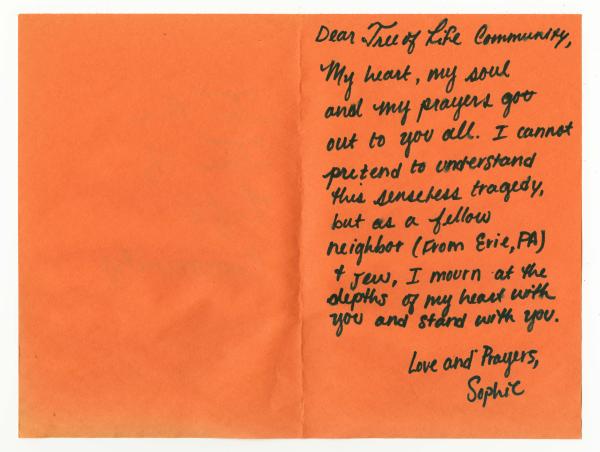 Dear Tree of Life Community,
My heart, my soul
and my prayers go
out to you all. I cannot
pretend to understand
this senseless tragedy,
but as a fellow
neighbor (from Erie, PA)
+ Jew, I mourn at the
depths of my heart with
you and stand with you.
Love and Prayers,
Sophie